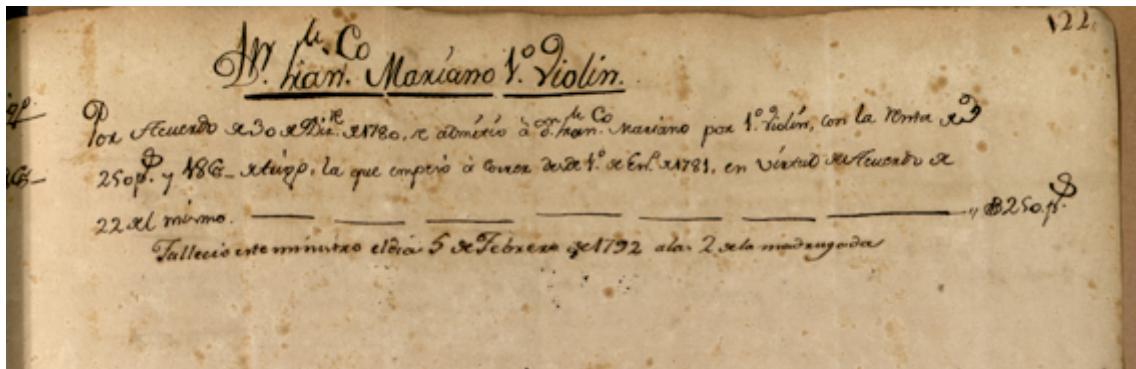 122.
Dn. Fran.co Mariano 1.º Violin.
Por Acuerdo de 30 de Dic.re de 1780, se admitió à dn. Fran.co Mariano por 1.º Violin, con la renta de
250 p.s y 48 f.s de trigo, la que empezó à correr desde 1.º de En.º de 1781, en virtud de Acuerdo de
22 del mismo. — — — — — — — „ 250 p.s
Fallecio este ministro el dia 5 de Febrero de 1792 a las 2 de la madrugada